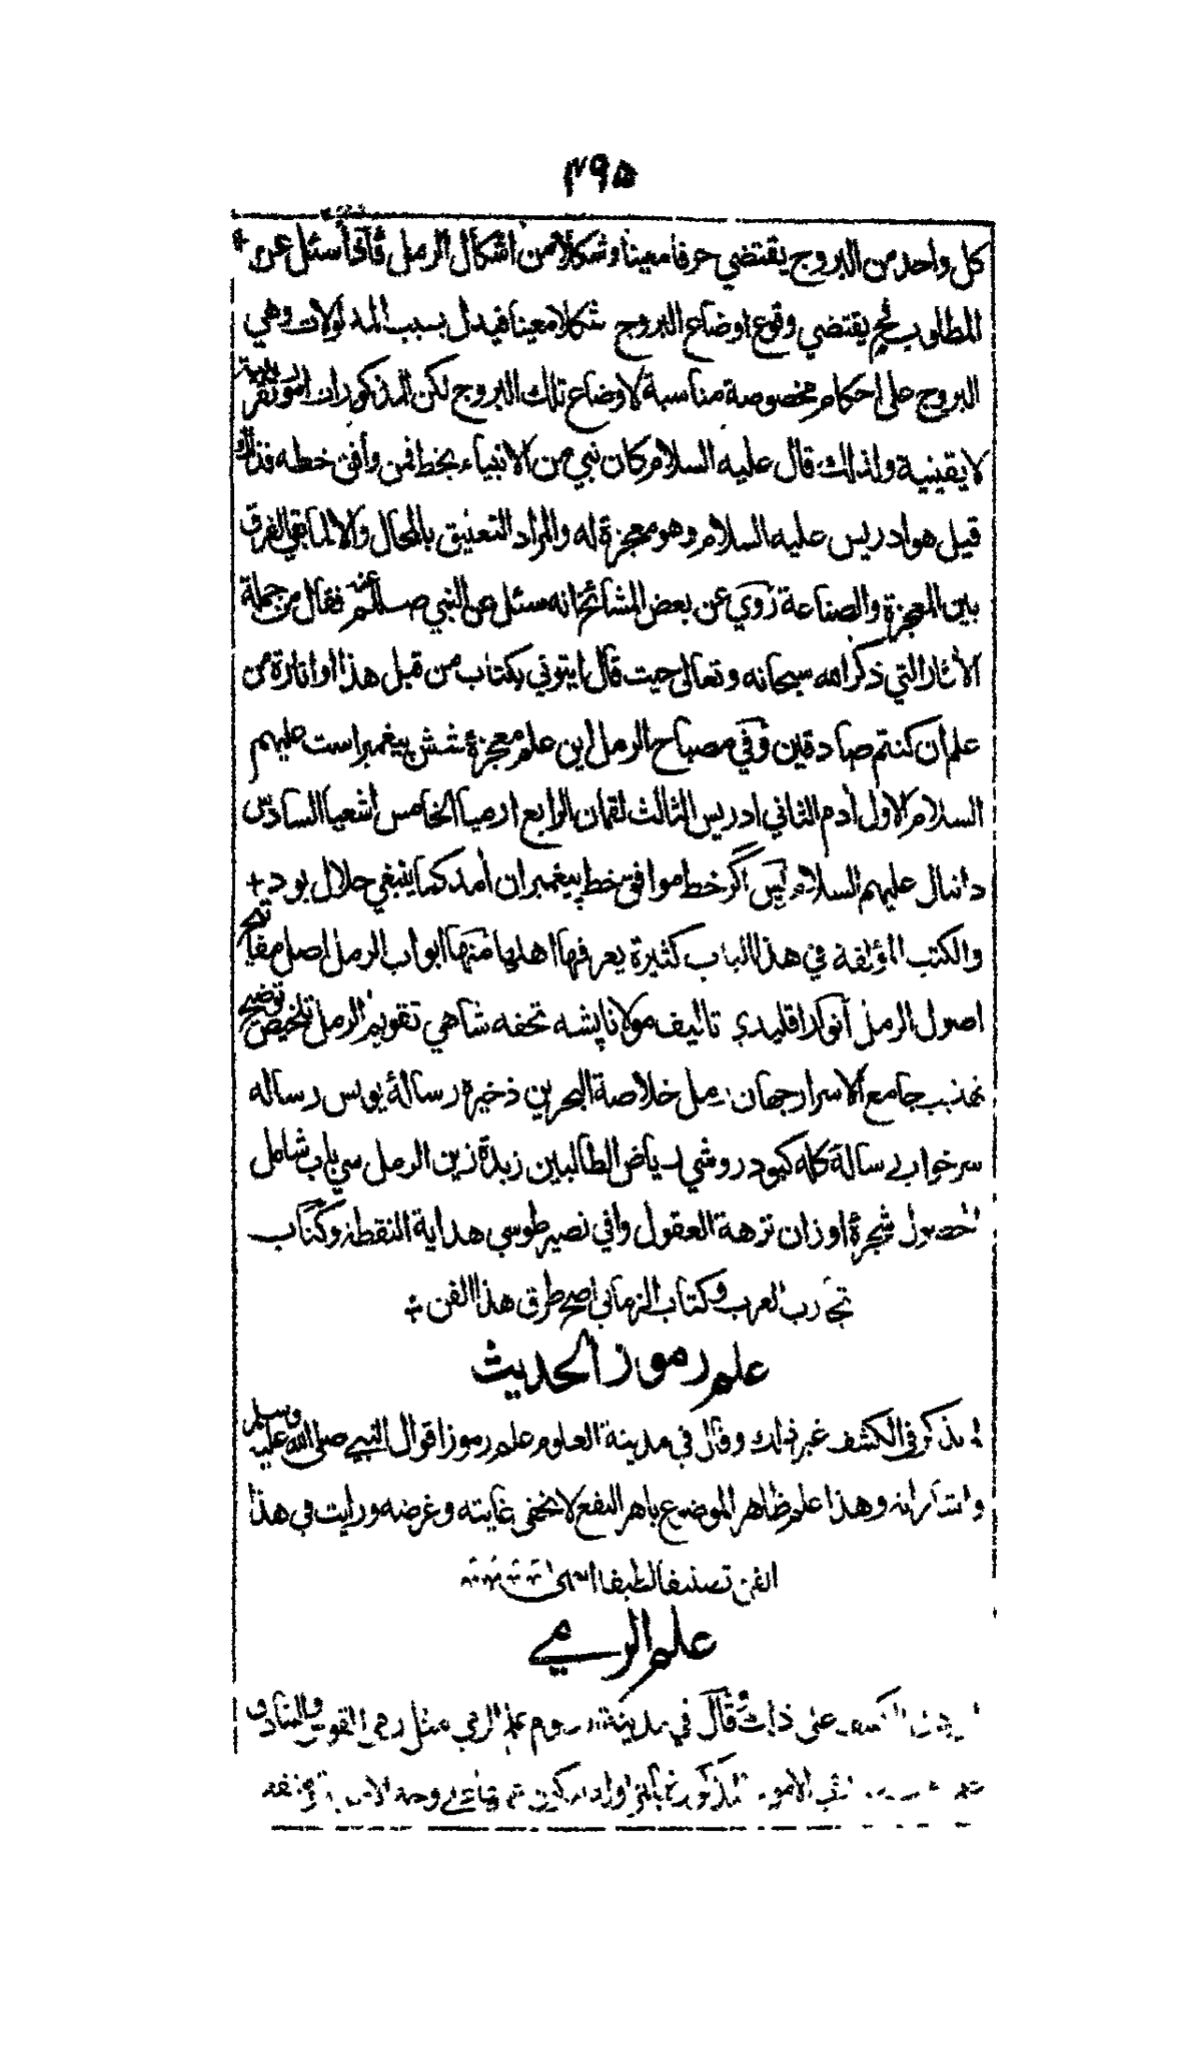 ٢٩٥
كل واحد من البروج يقتضي حرفا معينا وشكلا من اشكال الرمل فاذا سئل عن
المطلوب فح يقتضي وقوع اوضاع البروج شكلا معينا فيدل بسبب المدلولات وهي
البروج على احكام مخصوصة مناسبة لاوضاع تلك البروج لكن المذكورات امور تقريبية
لا يقينية ولذلك قال عليه السلام كان نبي من الانبياء يخط فمن وافق خطه فذاك
قيل هو ادريس عليه السلام وهو معجزة له والمراد التعليق بالمحال والا لما بقي الفرق
بين المعجزة والصناعة روي عن بعض المشائخ انه سئل عن النبي صلعم عنه فقال من جملة
الآثار التي ذكر الله سبحانه وتعالى حيث قال ايتوني بكتاب من قبل هذا او اثارة من
علم ان كنتم صادقين وفي مصباح الرمل اين علم معجزۀ شش پيغمبر است عليهم
السلام الاول آدم الثاني ادريس الثالث لقمان الرابع ارميا الخامس اشعيا السادس
دانيال عليهم السلام پس اگر خط موافق خط پيغمبران آمد كما ينبغي حلال بود
والكتب المؤلفة في هذا الباب كثيرة يعرفها اهلها منها ابواب الرمل اصل مفاتيح
اصول الرمل انوار اقليدي تاليف مولانا پشه تحفه شاهي تقويم الرمل تلخيص توضيح
تهذيب جامع الاسرار جهان رمل خلاصة البحرين ذخيره رسالۀ يونس رساله
سرخواب رسالة كله كبود روشي رياض الطالبين زبدة زين الرمل سي باب شامل
الاصول شجرۀ اوزان نزهة العقول وافي نصير طوسي هداية النقطة وكتاب
تجارب العرب وكتاب الزماني اصح طرق هذا الفن
علم رموز الحديث
لم يذكر في الكشف غير ذلك وقال في مدينة العلوم علم رموز اقوال النبي صلى الله عليه وسلم
واشاراته وهذا علم ظاهر الموضوع باهر النفع لا يخفى غايته وغرضه ورايت في هذا
الفن تصنيفا لطيفا انتهى
علم الرمي
الكشف على ذلك وقال في مدينة العلوم علم الرمي مثل رمي القوس والبنادق
الامور المذكورة